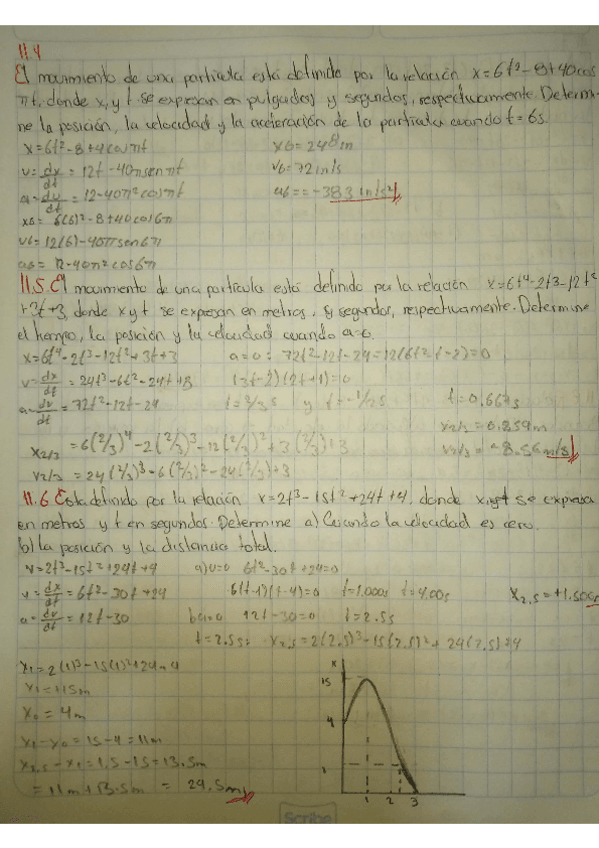 11.4
El movimiento de una partícula está definido por la relación x=6t²-8+40cos
πt, donde x, y t se expresan en pulgadas y segundos, respectivamente. Determi-
ne la posición, la velocidad y la aceleración de la partícula cuando t=6s.
x=6t²-8+40cosπt x6=248in
v=dx/dt=12t-40πsenπt v6=72in/s
a=dv/dt=12-40π²cosπt a6==-383in/s²
x6=6(6)²-8+40cos6π
v6=12(6)-40πsen6π
a6=12-40π²cos6π
11.5. El movimiento de una partícula está definido por la relación x=6t⁴-2t³-12t²
+3t+3, donde x y t se expresan en metros, y segundos, respectivamente. Determine
el tiempo, la posición y la velocidad cuando a=0.
x=6t⁴-2t³-12t²+3t+3 a=0: 72t²-12t-24=12(6t²-t-2)=0
v=dx/dt=24t³-6t²-24t+3 (3t-2)(2t+1)=0
a=dv/dt=72t²-12t-24 t=2/3s y t=-1/2s t=0.667s
x2/3=6(2/3)⁴-2(2/3)³-12(2/3)²+3(2/3)+3 x2/3=0.259m
v2/3=24(2/3)³-6(2/3)²-24(2/3)+3 v2/3=-8.56m/s
11.6 Esta definido por la relación x=2t³-15t²+24t+4, donde x, y t se expresa
en metros y t en segundos. Determine a) Cuando la velocidad es cero.
b) la posición y la distancia total.
v=2t³-15t²+24t+4 a) v=0 6t²-30t+24=0
v=dx/dt=6t²-30t+24 6(t-1)(t-4)=0 t=1.000s t=4.00s x2.5=+1.500s
a=dv/dt=12t-30 b) a=0 12t-30=0 t=2.5s
t=2.5s: x2.5=2(2.5)³-15(2.5)²+24(2.5)+4
x1=2(1)³-15(1)²+24+4
x1=15m
x0=4m
x1-x0=15-4=11m
x2.5-x1=1.5-15=13.5m
=11m+13.5m = 24.5m
x
15
4
1
1 2 3
Scribe